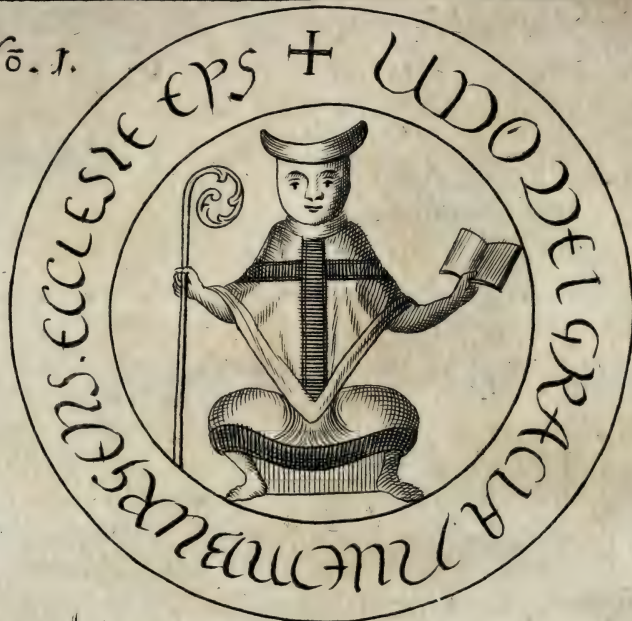 Nō. 1.
+ UDO DEI GRACIA NUEMBURGENS. ECCLESIE EPS